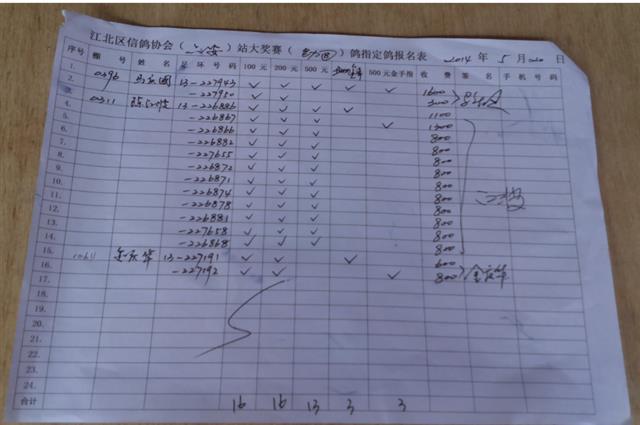 江北区信鸽协会（六安）站大奖赛（）鸽指定鸽报名表 2014 年 5 月 20 日
序号 棚号 姓名 足环号码 100元 200元 500元 500元金手指 收费 签名 手机号码
1. 0396 13-227943 ✓ ✓ ✓ ✓ ✓ 1600
2. -227950 ✓ ✓ 300
3. 0311 13-226886 ✓ ✓ ✓ ✓ 1100
4. -226867 ✓ ✓ ✓ ✓ 1300
5. -226866 ✓ ✓ ✓ 800
6. -226882 ✓ ✓ ✓ 800
7. -227655 ✓ ✓ ✓ 800
8. -226872 ✓ ✓ ✓ 800
9. -226871 ✓ ✓ ✓ 800
10. -226874 ✓ ✓ ✓ 800
11. -226878 ✓ ✓ ✓ 800
12. -226881 ✓ ✓ ✓ 800
13. -227658 ✓ ✓ ✓ 800
14. -226868 ✓ ✓ ✓ 800
15. 金庆华 13-227191 ✓ ✓ ✓ 600
16. -227192 ✓ ✓ ✓ 800 金庆华
17.
18.
19.
20.
21.
22.
23.
24.
合计 16 16 13 3 3